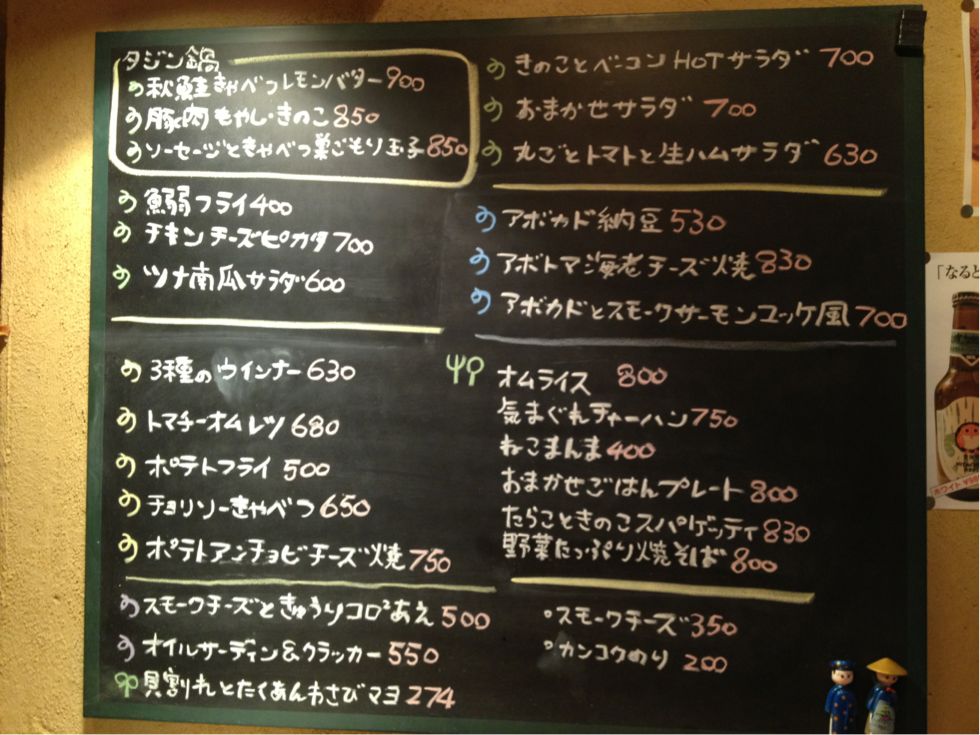 タジン鍋
秋鮭きゃべつレモンバター900
豚肉もやし・きのこ850
ソーセージときゃべつ巣ごもり玉子850
鰯フライ400
チキンチーズピカタ700
ツナ南瓜サラダ600
3種のウインナー630
トマチーオムレツ680
ポテトフライ500
チョリソーきゃべつ650
ポテトアンチョビチーズ焼750
スモークチーズときゅうりコロ²あえ500
オイルサーディン&クラッカー550
貝割れとたくあんわさびマヨ274
きのことベーコンHOTサラダ700
おまかせサラダ700
丸ごとトマトと生ハムサラダ630
アボカド納豆530
アボトマ海老チーズ焼830
アボカドとスモークサーモンユッケ風700
オムライス 800
気まぐれチャーハン750
ねこまんま400
おまかせごはんプレート800
たらこときのこスパゲッティ830
野菜たっぷり焼そば800
スモークチーズ350
カンコクのり 200
「なると